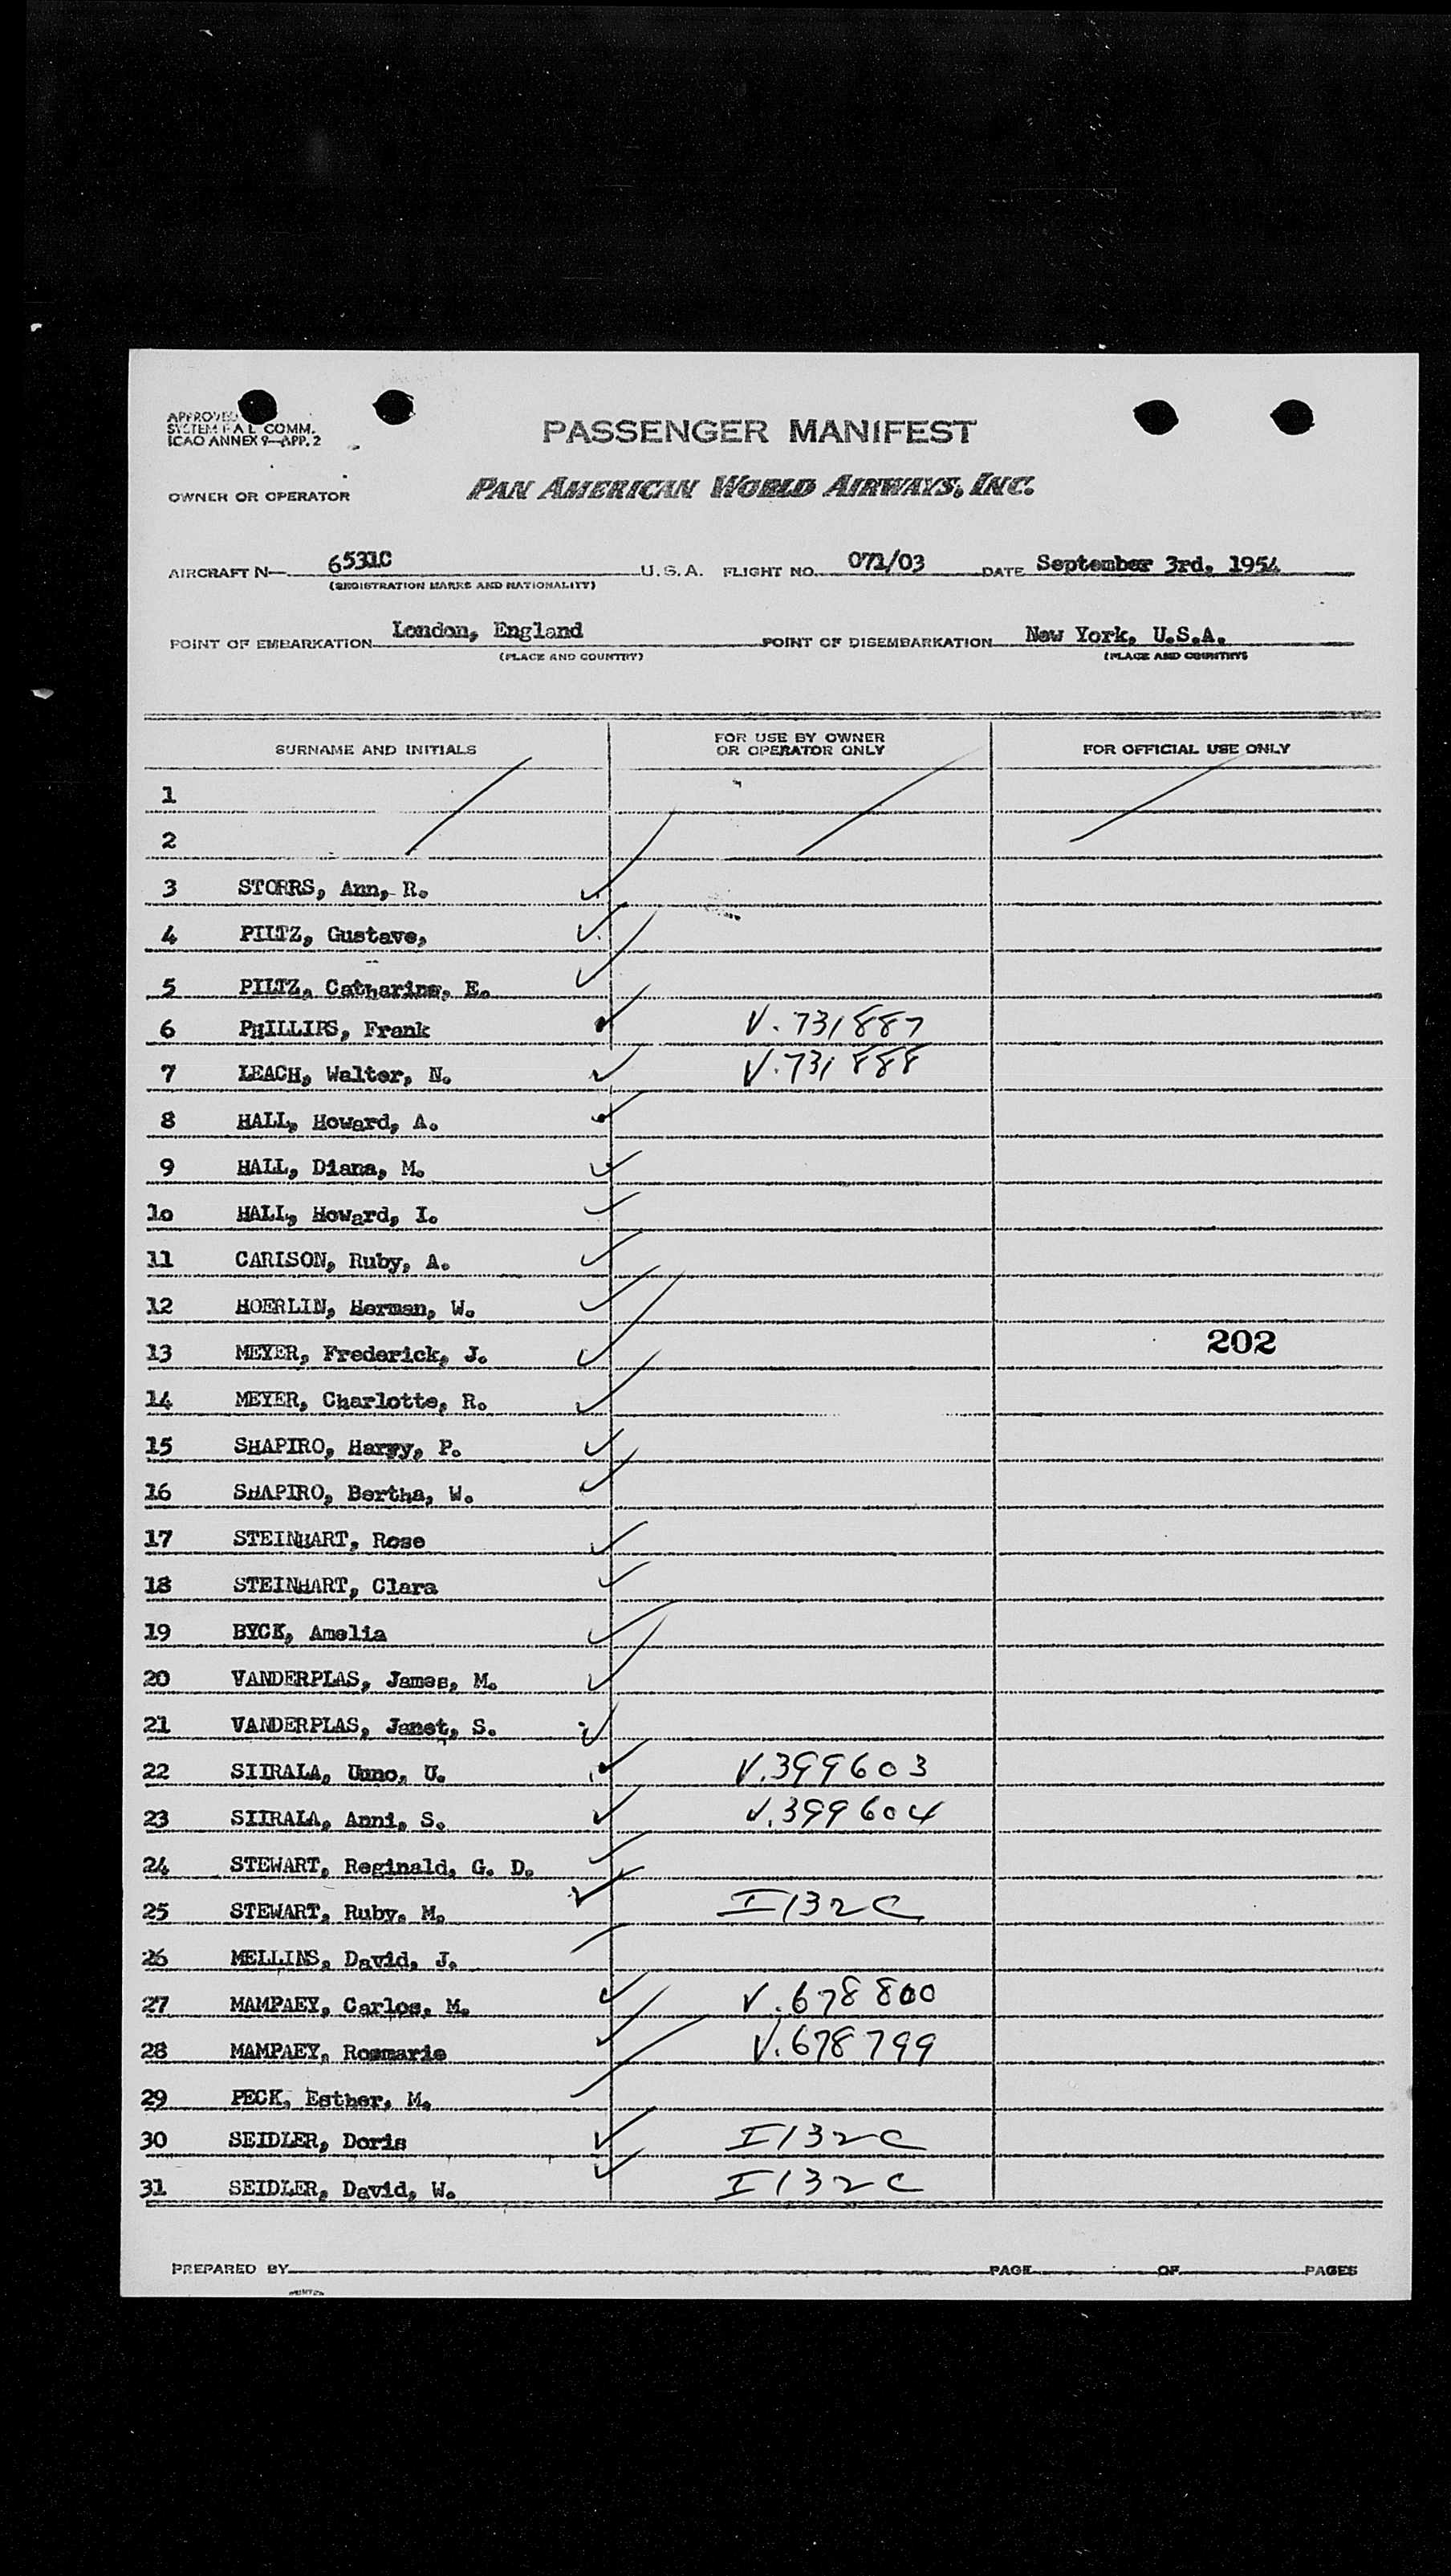 APPROVED
SYSTEM F A L COMM.
ICAO ANNEX 9—APP. 2
PASSENGER MANIFEST
OWNER OR OPERATOR PAN AMERICAN WORLD AIRWAYS, INC.
AIRCRAFT N— 6531C U.S.A. FLIGHT NO. 071/03 DATE September 3rd, 1954
(REGISTRATION MARKS AND NATIONALITY)
POINT OF EMBARKATION London, England POINT OF DISEMBARKATION New York, U.S.A.
(PLACE AND COUNTRY) (PLACE AND COUNTRY)
SURNAME AND INITIALS FOR USE BY OWNER OR OPERATOR ONLY FOR OFFICIAL USE ONLY
1
2
3 STORRS, Ann, R.
4 PILTZ, Gustave,
5 PILTZ, Catharine, E.
6 PHILLIPS, Frank V. 731887
7 LEACH, Walter, N. V. 731888
8 HALL, Howard, A.
9 HALL, Diana, M.
10 HALL, Howard, I.
11 CARLSON, Ruby, A.
12 HOERLIN, Herman, W.
13 MEYER, Frederick, J. 202
14 MEYER, Charlotte, R.
15 SHAPIRO, Harry, P.
16 SHAPIRO, Bertha, W.
17 STEINHART, Rose
18 STEINHART, Clara
19 BYCK, Amelia
20 VANDERPLAS, James, M.
21 VANDERPLAS, Janet, S.
22 SIIRALA, Uuno, U. V.399603
23 SIIRALA, Anni, S. V.399604
24 STEWART, Reginald, G. D.
25 STEWART, Ruby, M. I132C
26 MELLINS, David, J.
27 MAMPAEY, Carlos, M. V.678800
28 MAMPAEY, Rosmarie V.678799
29 PECK, Esther, M.
30 SEIDLER, Doris I132C
31 SEIDLER, David, W. I132C
PREPARED BY PAGE OF PAGES